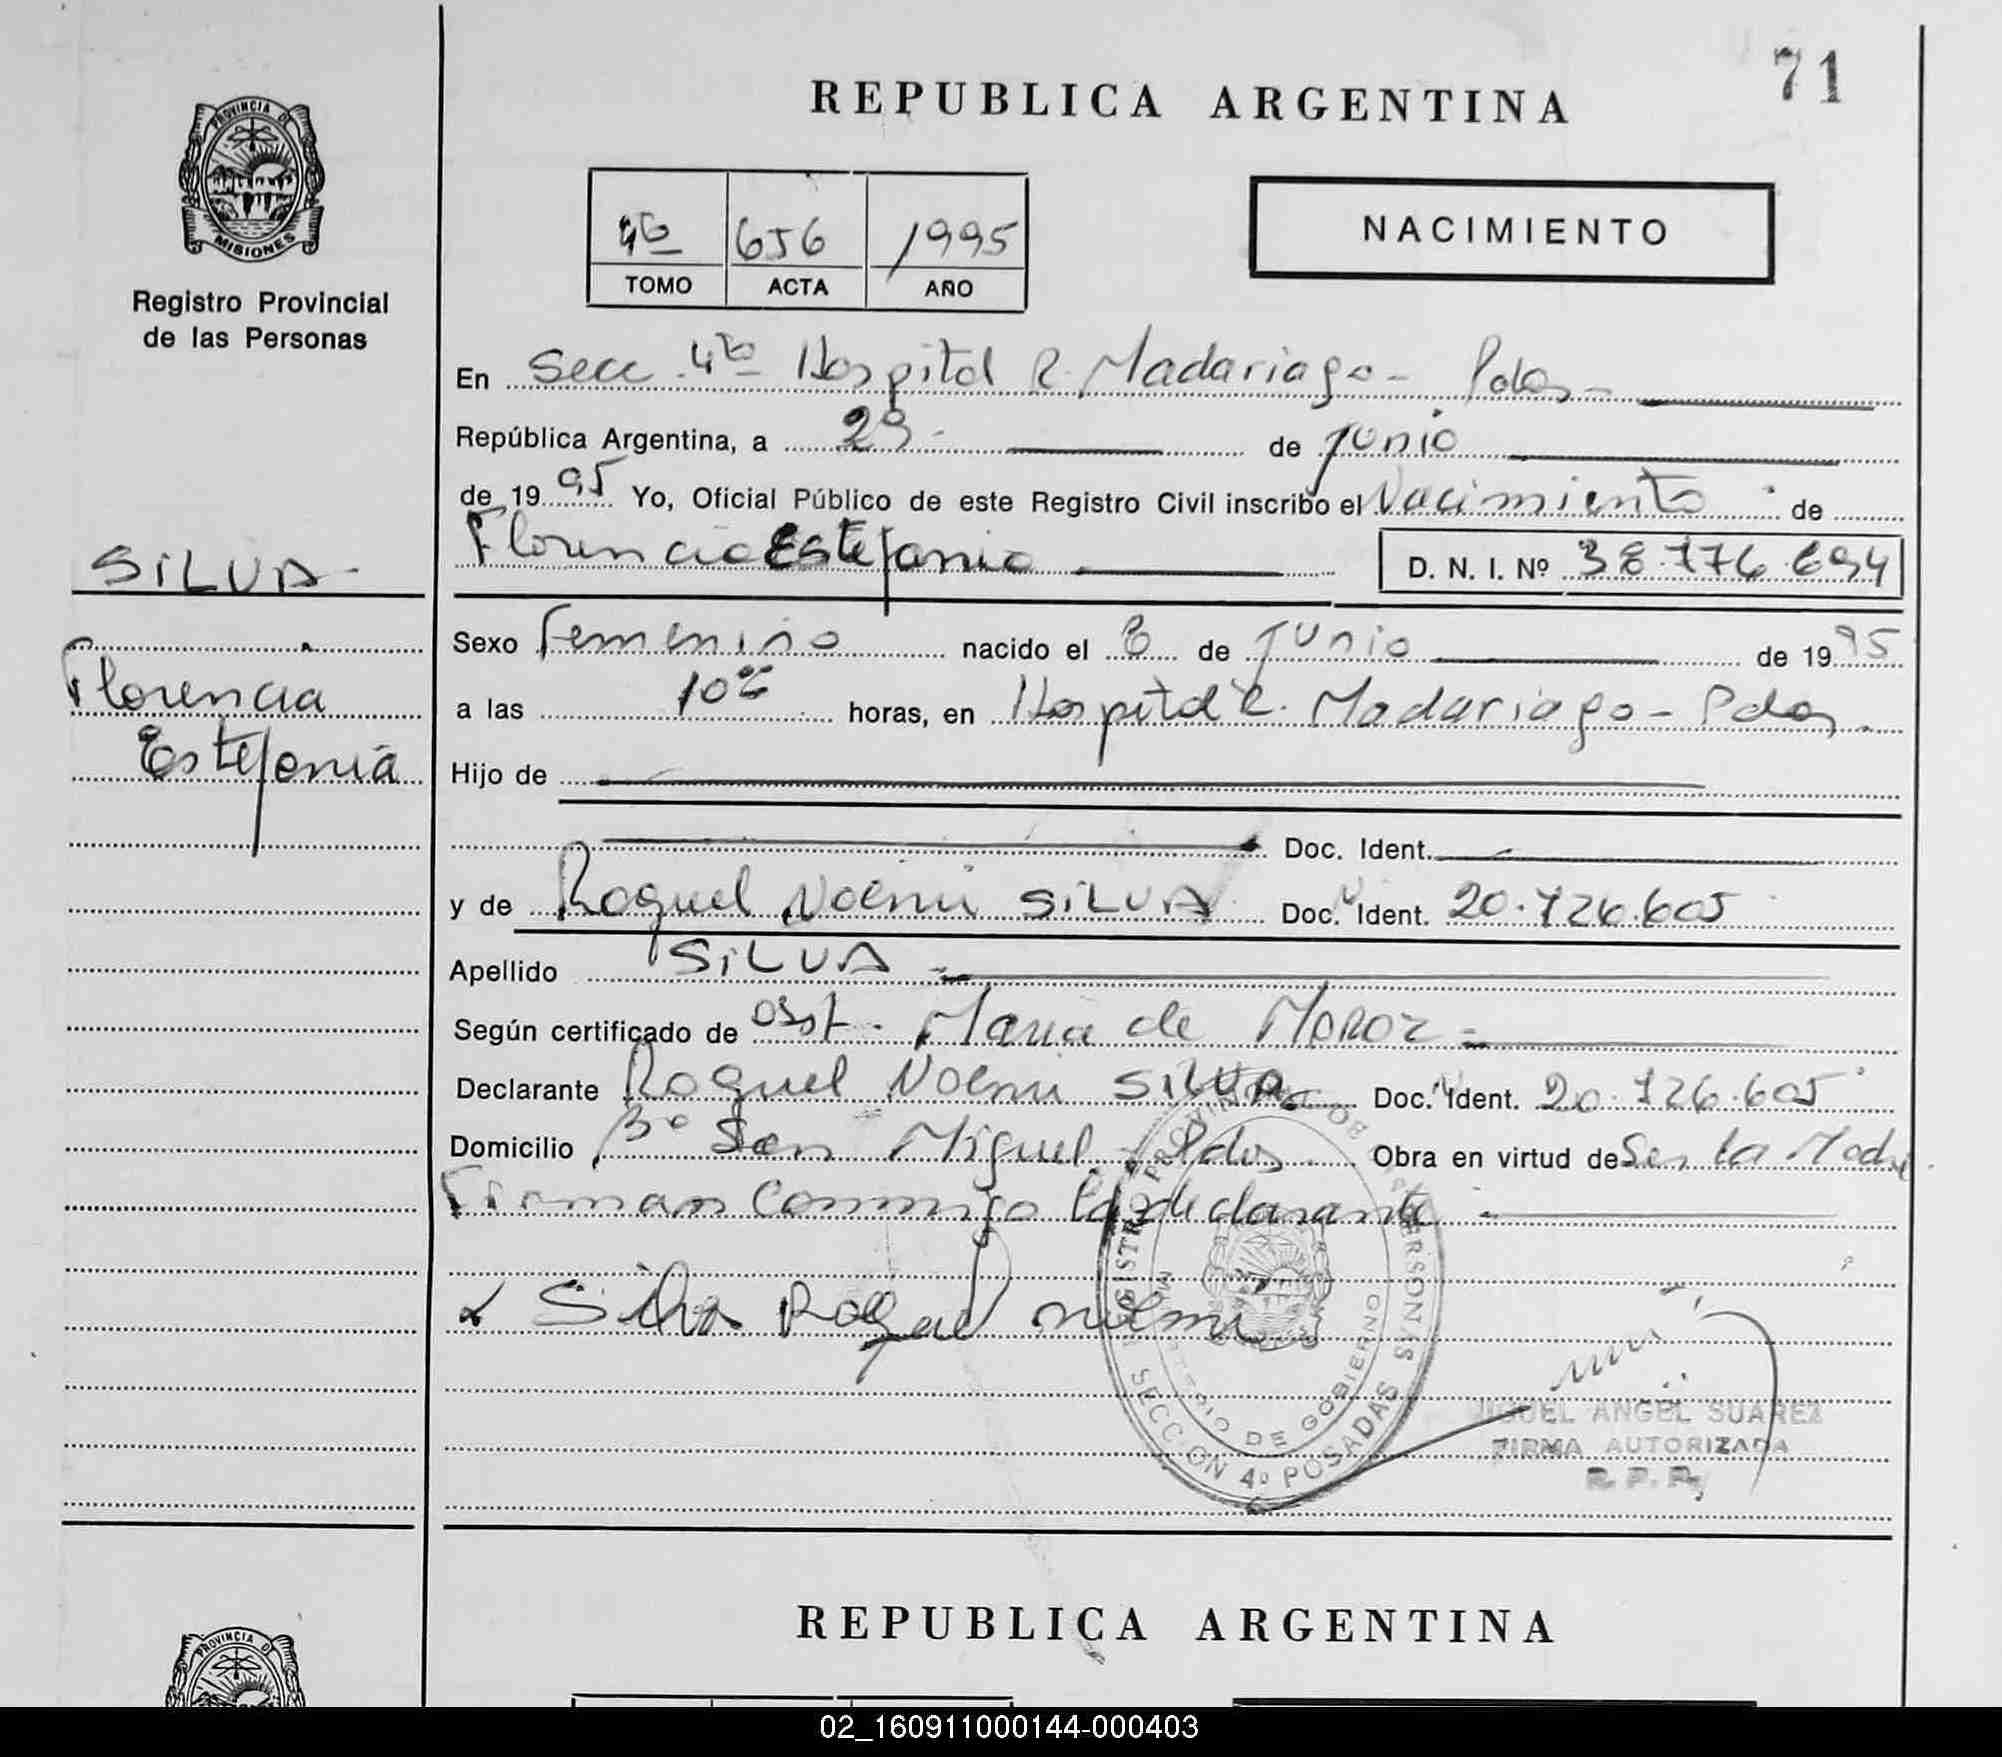 71
REPUBLICA ARGENTINA
PROVINCIA DE
MISIONES
Registro Provincial
de las Personas
656 1995
TOMO ACTA AÑO
NACIMIENTO
En Secc. 4ta Hospital R. Madariaga - Pdas -
República Argentina, a 29 - de Junio
de 1995 Yo, Oficial Público de este Registro Civil inscribo el Nacimiento de
Florencia Estefania D. N. I. Nº 38.776.694
SILVA -
Florencia
Estefania
Sexo Femenino nacido el 8 de Junio de 1995
a las 10 horas, en Hospital R. Madariaga - Pdas -
Hijo de
Doc. Ident.
y de Raquel Noemi SILVA Doc. Ident. 20.726.605
Apellido SILVA -
Según certificado de Obst. Maria de Moroz =
Declarante Raquel Noemi SILVA Doc. Ident. 20.726.605
Domicilio Bº San Miguel Pdas Obra en virtud de Ser la Madre
Firman Conmigo la declarante -
Silva Raquel Noemi
REGISTRO PROVINCIAL DE LAS PERSONAS
MINISTERIO DE GOBIERNO
SECCION 4º POSADAS
MIGUEL ANGEL SUAREZ
FIRMA AUTORIZADA
R. P. P.
REPUBLICA ARGENTINA
PROVINCIA DE
02_160911000144-000403